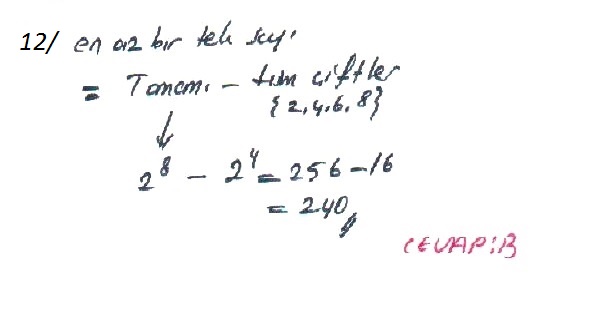 12/ en az bir tek sayı
= Tamamı - tüm çiftler
{2,4,6,8}
2⁸ - 2⁴ = 256 - 16
= 240
CEVAP:B